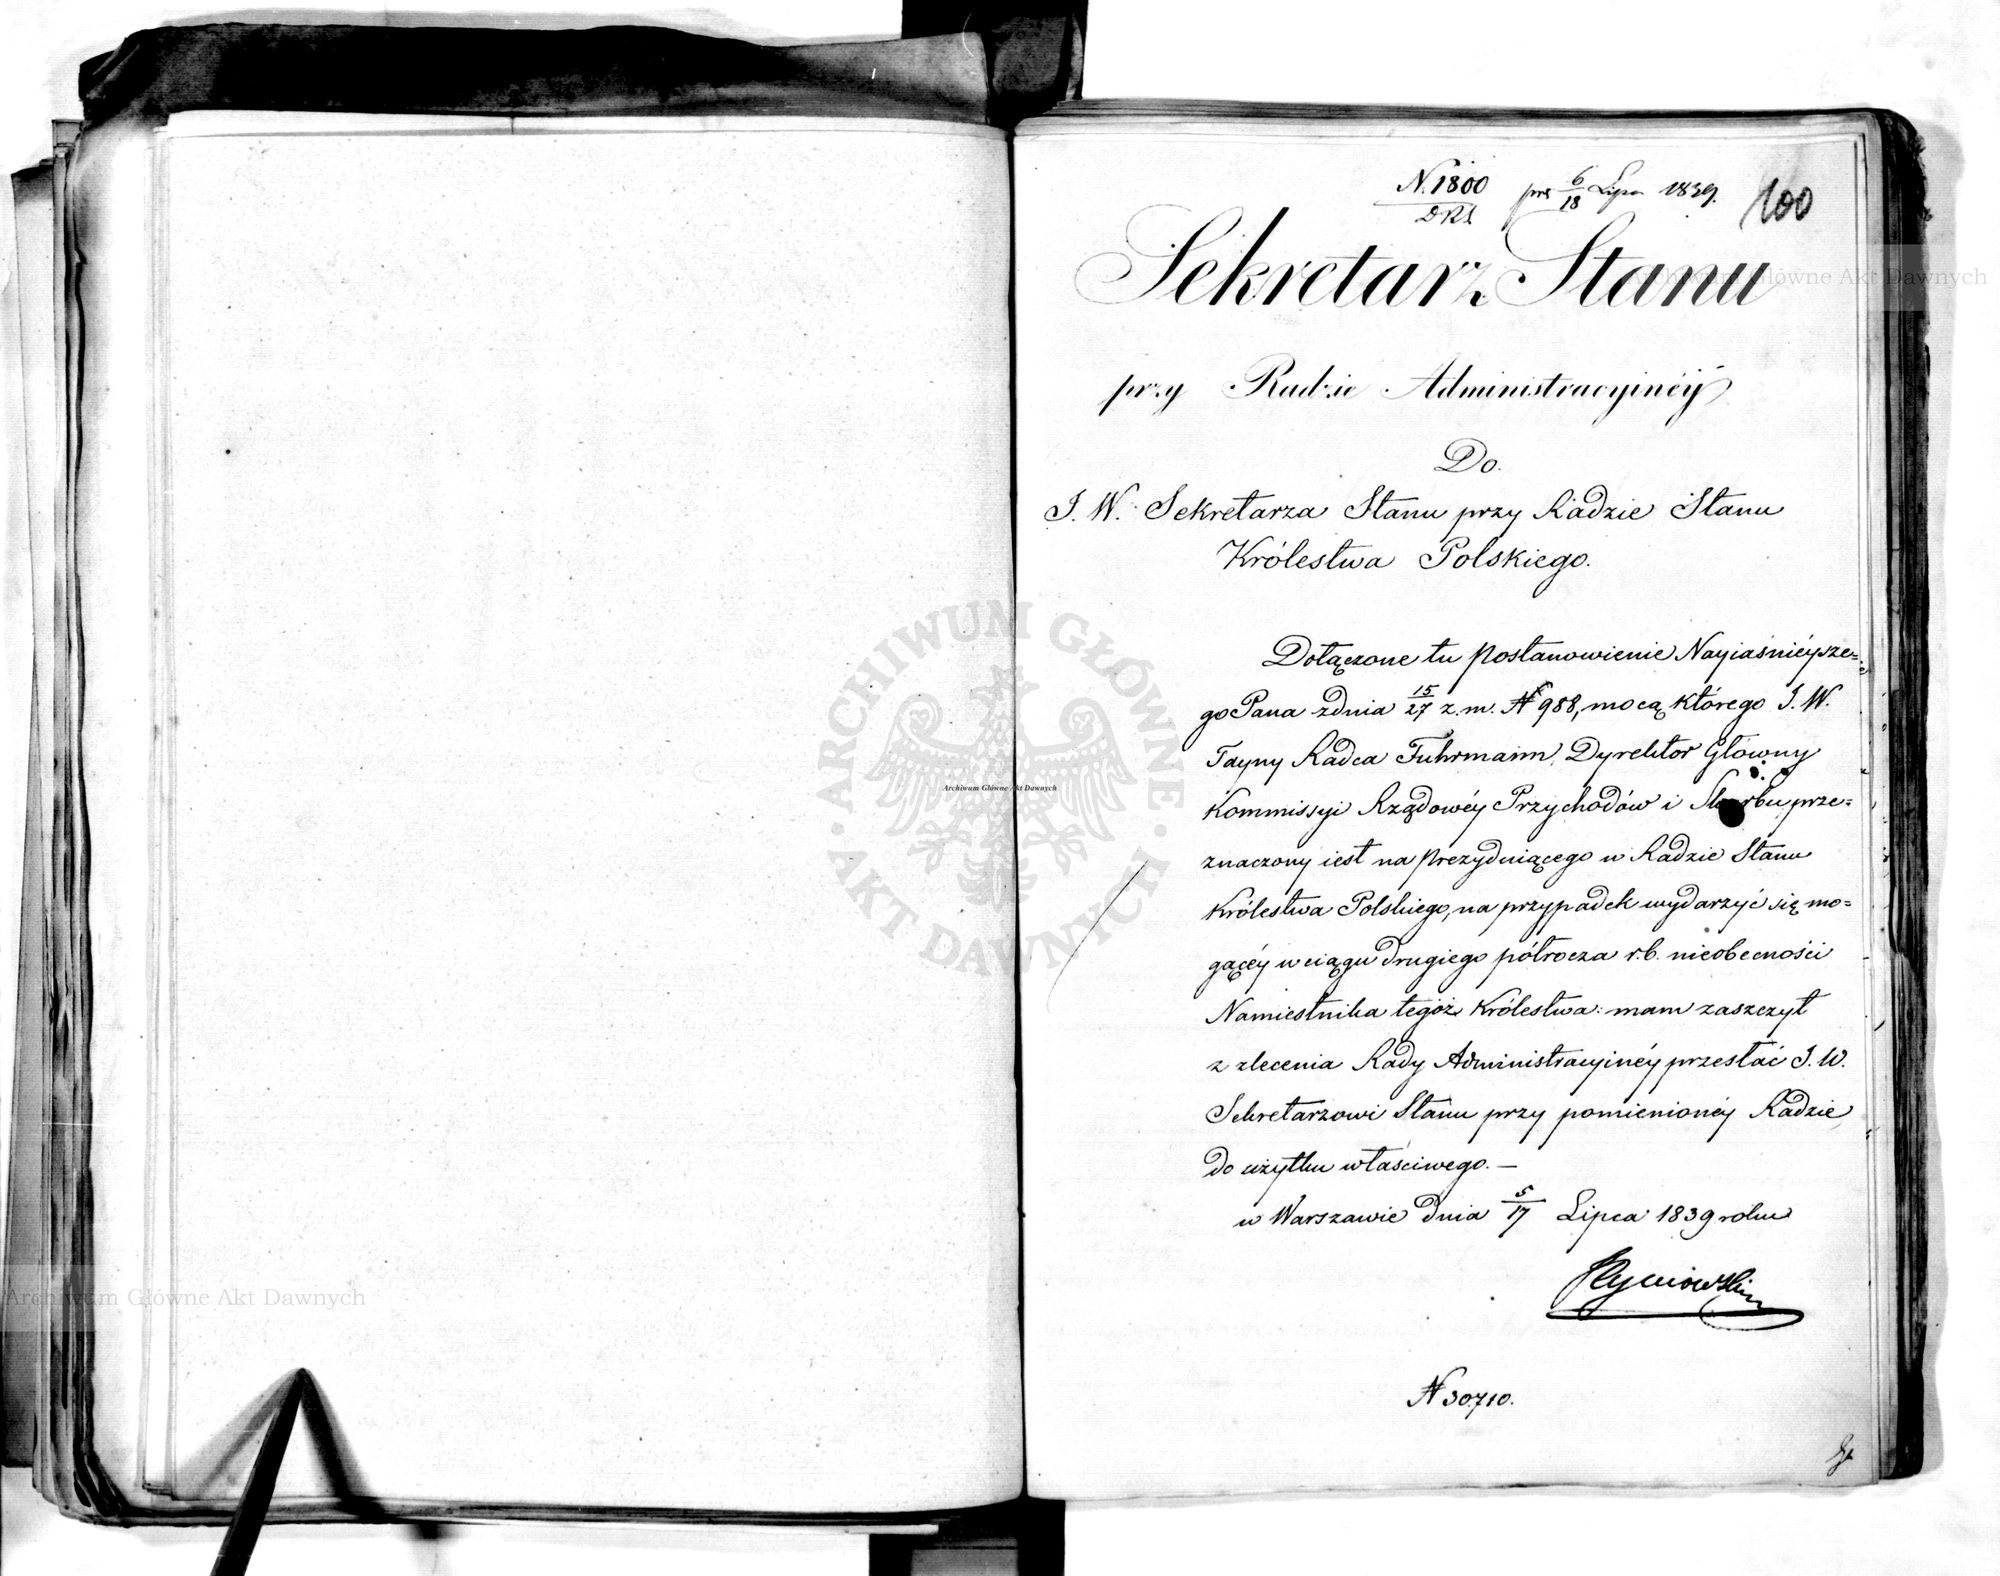 N. 1800 prs 6/18 Lipca 1839. 100
DRS
Sekretarz Stanu
przy Radzie Administracyinéy
Do
J. W. Sekretarza Stanu przy Radzie Stanu
Królestwa Polskiego.
Dołączone tu postanowienie Nayiaśnieysze=
go Pana z dnia 15/27 z. m. N 988, mocą którego J. W.
Tayny Radca Fuhrmann, Dyrektor Główny
Kommissyi Rządowéy Przychodów i Skarbu, prze=
znaczony iest na prezyduiącego w Radzie Stanu
Królestwa Polskiego, na przypadek wydarzyć się mo=
gącéy w ciągu drugiego półrocza r. b. nieobecności
Namiestnika tegoż Królestwa: mam zaszczyt
z zlecenia Rady Administracyinéy przesłać J. W.
Sekretarzowi Stanu przy pomienionéy Radzie,
do użytku właściwego. —
w Warszawie dnia 5/17 Lipca 1839 roku
N 30710.
ARCHIWUM GŁÓWNE AKT DAWNYCH
Archiwum Główne Akt Dawnych
Archiwum Główne Akt Dawnych
Archiwum Główne Akt Dawnych